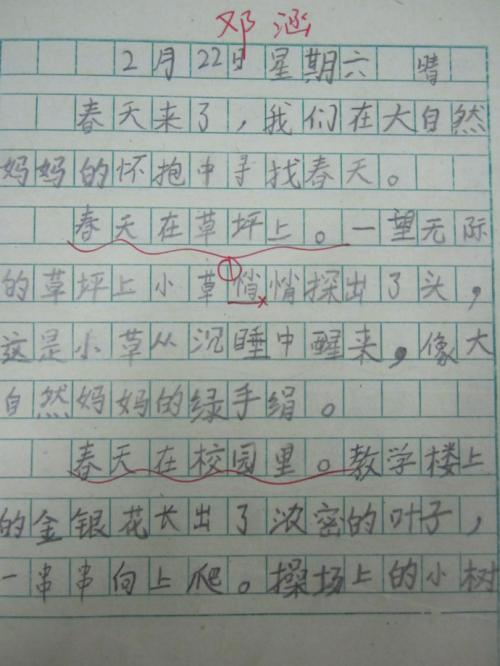 邓涵
2月22日 星期六 晴
春天来了，我们在大自然
妈妈的怀抱中寻找春天。
春天在草坪上。一望无际
①
的草坪上小草悄悄探出了头，
这是小草从沉睡中醒来，像大
自然妈妈的绿手绢。
春天在校园里。教学楼上
的金银花长出了浓密的叶子，
一串串向上爬。操场上的小树